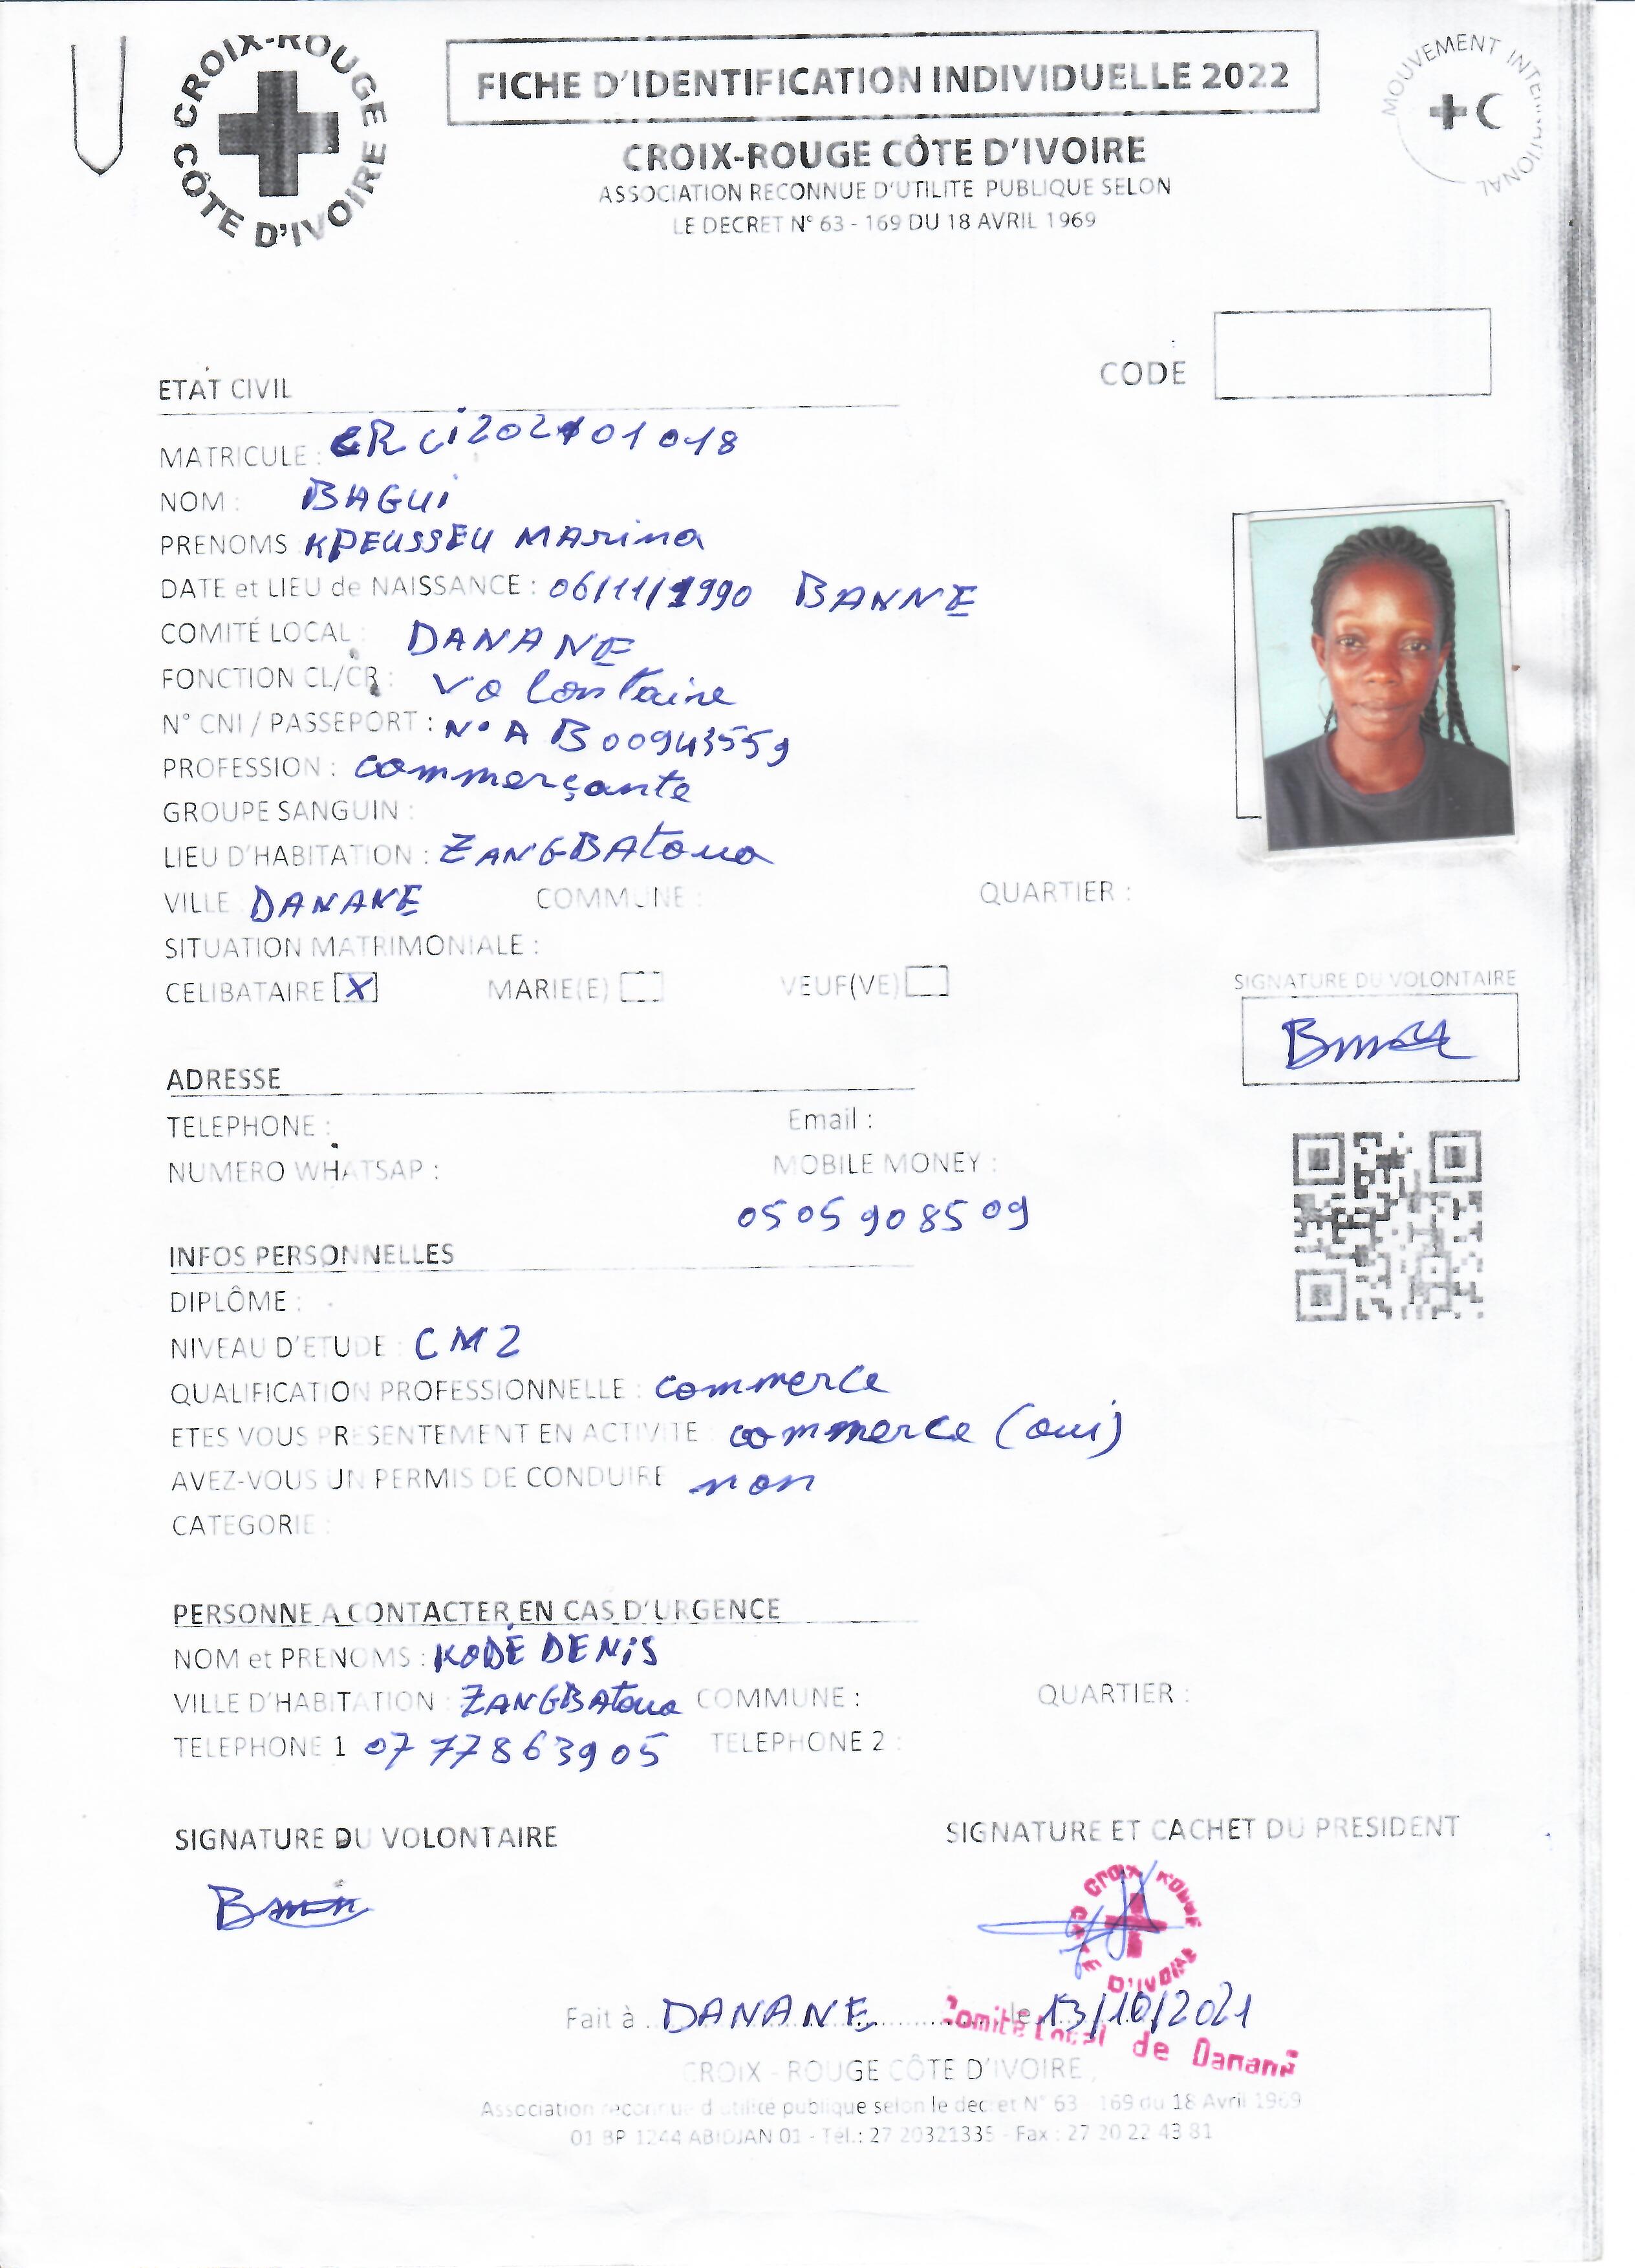 CROIX-ROUGE CÔTE D'IVOIRE
FICHE D'IDENTIFICATION INDIVIDUELLE 2022
MOUVEMENT INTERNATIONAL
CROIX-ROUGE CÔTE D'IVOIRE
ASSOCIATION RECONNUE D'UTILITE PUBLIQUE SELON
LE DECRET N° 63 - 169 DU 18 AVRIL 1969
CODE
ETAT CIVIL
MATRICULE : CRCi202101018
NOM : BAGUi
PRENOMS KPEUSSEU MArina
DATE et LIEU de NAISSANCE : 06/11/1990 BANNE
COMITÉ LOCAL : DANANE
FONCTION CL/CR : Volontaire
N° CNI / PASSEPORT : N° A B00943559
PROFESSION : commerçante
GROUPE SANGUIN :
LIEU D'HABITATION : ZANGBAtoua
VILLE DANANE COMMUNE : QUARTIER :
SITUATION MATRIMONIALE :
CELIBATAIRE [X] MARIE(E) VEUF(VE)
SIGNATURE DU VOLONTAIRE
ADRESSE
TELEPHONE : Email :
NUMERO WHATSAP : MOBILE MONEY :
05 05 90 85 09
INFOS PERSONNELLES
DIPLÔME :
NIVEAU D'ETUDE : CM2
QUALIFICATION PROFESSIONNELLE : commerce
ETES VOUS PRESENTEMENT EN ACTIVITE commerce (oui)
AVEZ-VOUS UN PERMIS DE CONDUIRE non
CATEGORIE :
PERSONNE A CONTACTER EN CAS D'URGENCE
NOM et PRENOMS : KODÉ DENiS
VILLE D'HABITATION : ZANGBAtoua COMMUNE : QUARTIER :
TELEPHONE 1 07 77 86 39 05 TELEPHONE 2 :
SIGNATURE DU VOLONTAIRE SIGNATURE ET CACHET DU PRESIDENT
CROIX ROUGE CÔTE D'IVOIRE
Fait à DANANE le 13/10/2021
Comité Local de Danané
CROIX - ROUGE CÔTE D'IVOIRE
Association reconnue d'utilité publique selon le decret N° 63 - 169 du 18 Avril 1969
01 BP 1244 ABIDJAN 01 - Tél.: 27 20321335 - Fax : 27 20 22 43 81